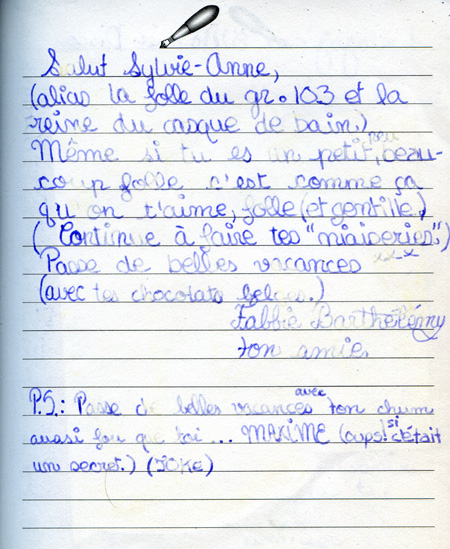 Salut Sylvie-Anne,
(alias la folle du gr. 103 et la
reine du casque de bain.)
Même si tu es un petit peu, beau-
coup folle c'est comme ça
qu'on t'aime, folle (et gentille)
(Continue à faire tes "niaiseries".)
Passe de belles vacances xx-x
(avec tes chocolats belges.)
Fabbie Barthélémy
ton amie.
P.S.: Passe de belles vacances avec ton chum
aussi fou que toi ... MAXIME (oups! si c'était
un secret.) (JOKE)